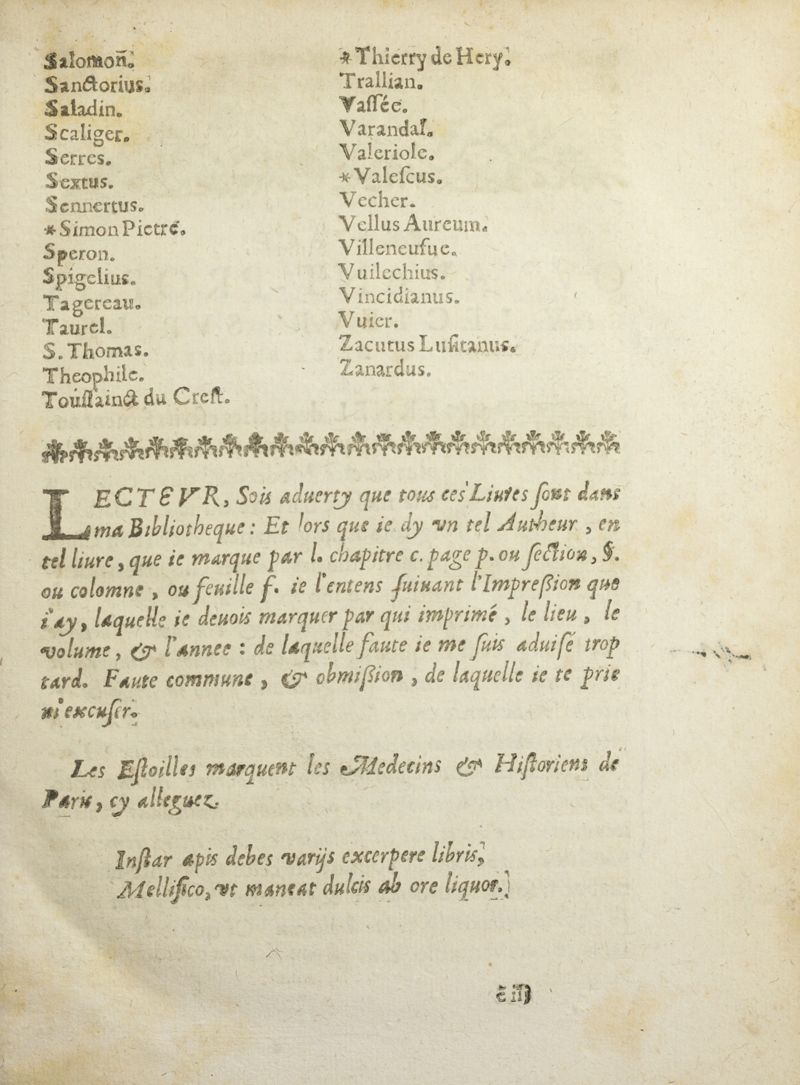 Salomon.
Sanctorius.
Saladin.
Scaliger.
Serres.
Sextus.
Sennertus.
*Simon Pietré.
Speron.
Spigelius.
Tagereau.
Taurel.
S. Thomas.
Theophile.
Touſſainct du Creſt.
*Thierry de Hery.
Trallian.
Vaſſée.
Varandal.
Valeriole.
*Valeſcus.
Vecher.
Vellus Aureum.
Villeneufue.
Vuilechius.
Vincidianus.
Vuier.
Zacutus Luſitanus.
Zanardus.
LECTEVR, Sois aduerty que tous ces Liures ſont dans
ma Bibliotheque: Et lors que ie dy vn tel Autheur, en
tel liure, que ie marque par l. chapitre c. page p. ou ſection, §.
ou colomne, ou feuille f. ie l'entens ſuiuant l'Impreſsion que
i'ay, laquelle ie deuois marquer par qui imprimé, le lieu, le
volume, & l'annee: de laquelle faute ie me ſuis aduiſé trop
tard. Faute commune, & obmiſsion, de laquelle ie te prie
m'excuſer.
Les Eſtoilles marquent les Medecins & Hiſtoriens de
Paris, cy alleguez.
Inſtar apis debes varijs excerpere libris,
Mellifico, vt maneat dulcis ab ore liquor.
ē iij